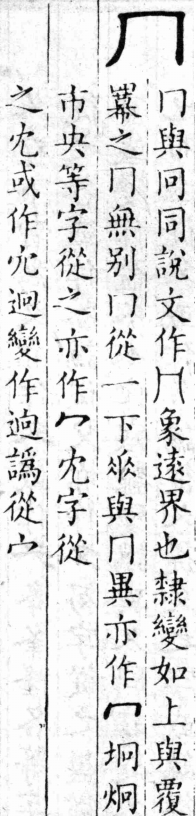 冂
冂與冋同說文作冂象遠界也隸變如上與覆
羃之冂無別冂從一下𠂹與冂異亦作冖坰炯
市央等字從之亦作冖冘字從
之冘或作宂迥變作逈譌從宀